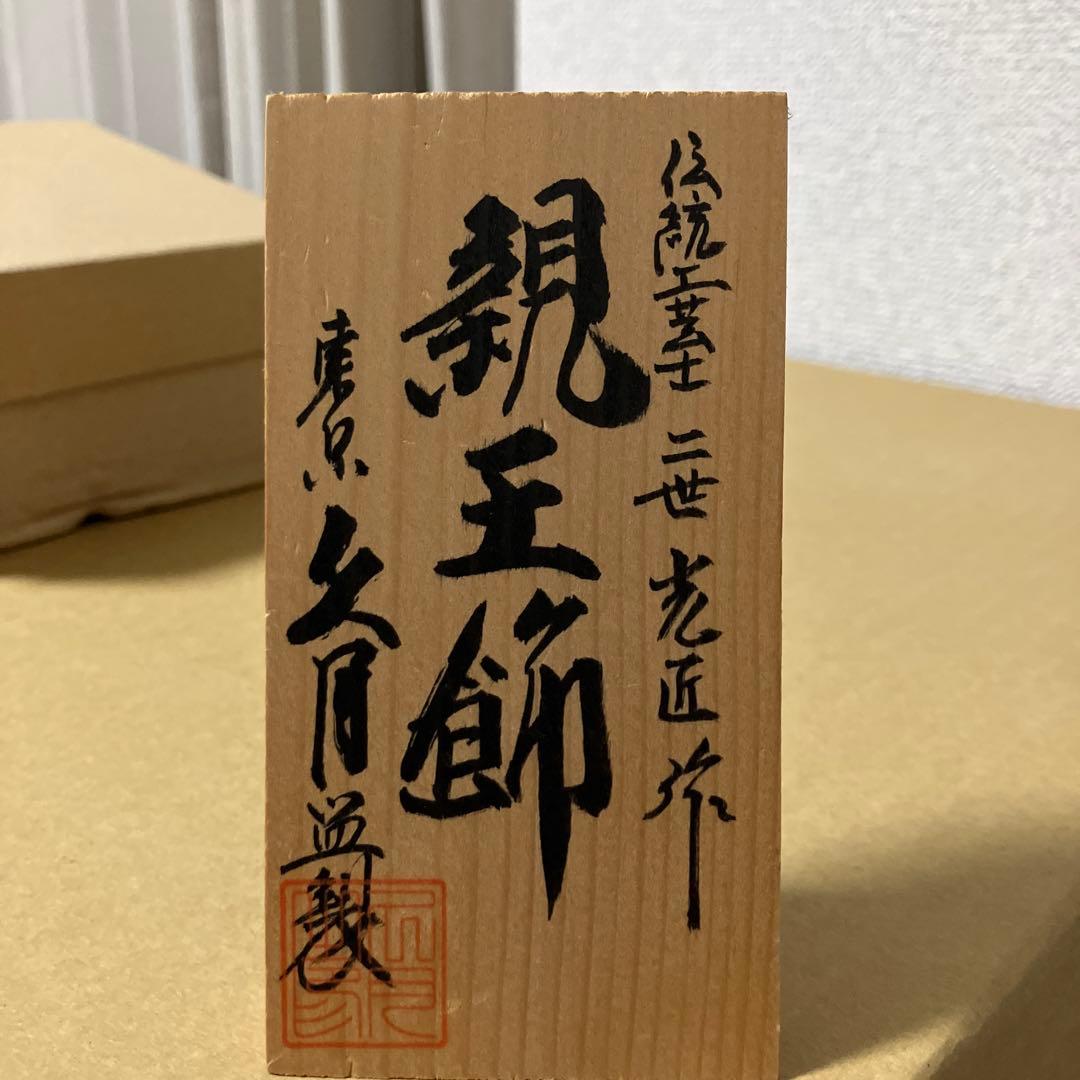 伝統工芸士 二世 光匠作
親王飾
東京 久月謹製